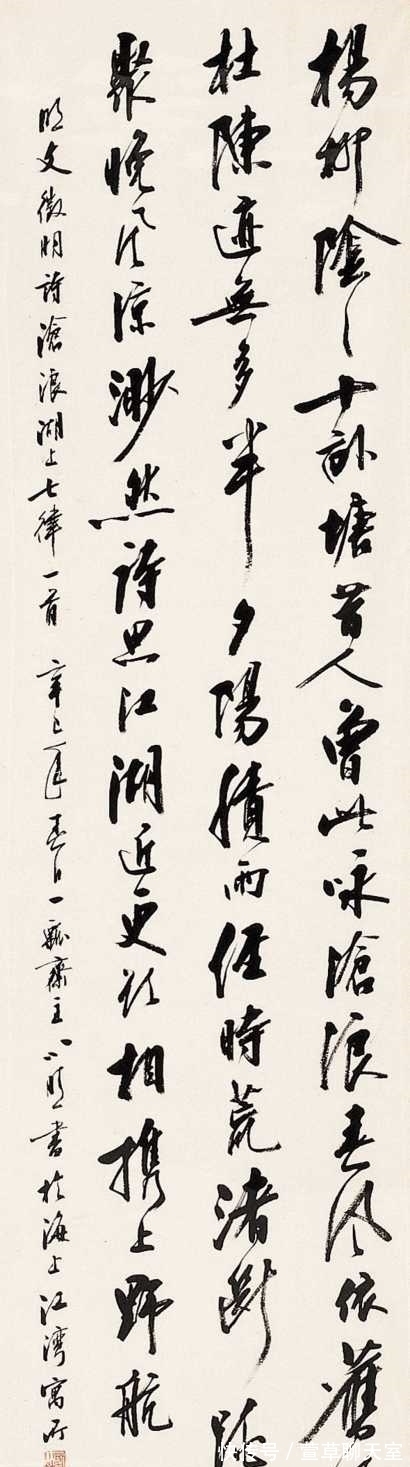 楊柳陰〻十畝塘昔人曾此咏滄浪春風依舊
杜陳迹無多半夕陽積雨經時荒渚斷跳
聚晚風涼渺然詩思江湖近更欲相攜上野航
明文徵明詩滄浪湖上七律一首 辛巳年春日一瓢齋主書於海上江灣寓所
快传号／萱草聊天室